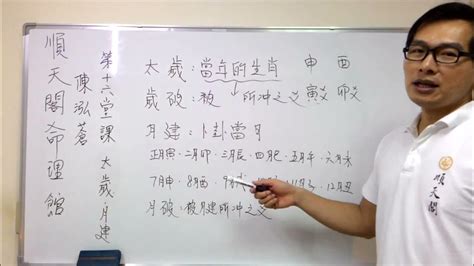 順天閣命理館
陳泓蒼
第十六堂課 太歲月建
太歲：當年的生肖 申 酉
歲破：被 所冲之爻 寅爻 卯爻
月建：卜卦當月
正月寅·二月卯·三月辰·四月巳·五月午·六月未
7月申·8月酉·9月戌· 11月子·12月丑
月破：被月建所冲之爻
順天閣